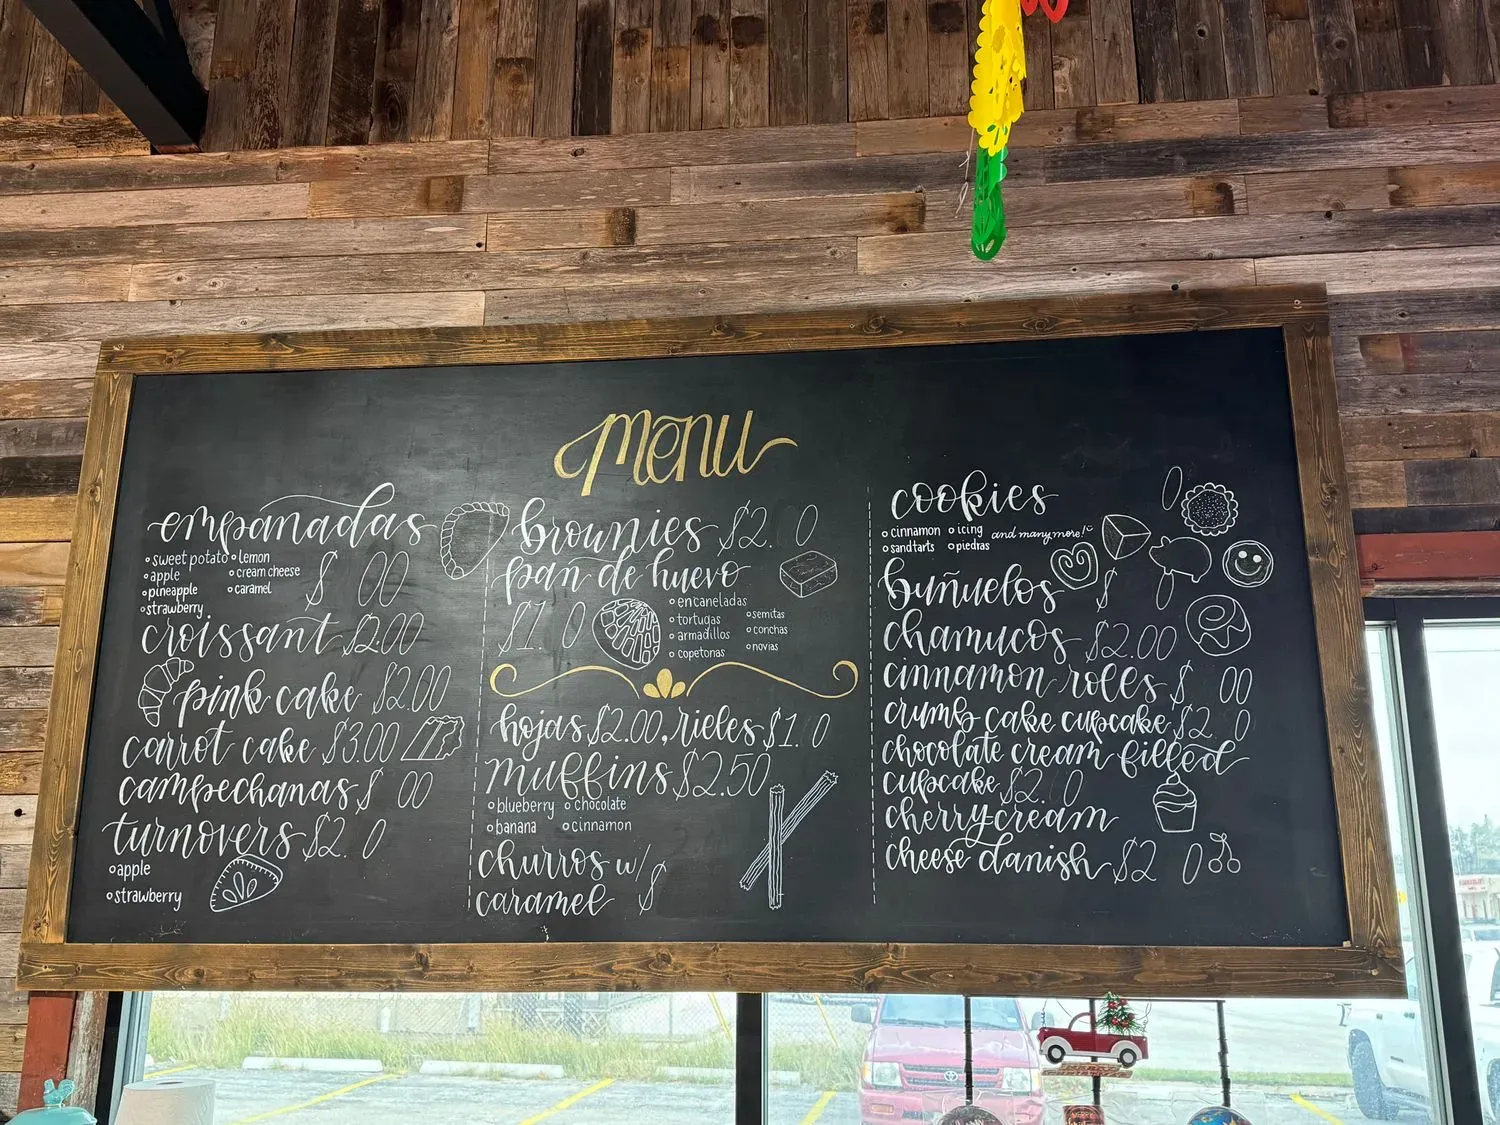 menu
empanadas
sweet potato
lemon
apple
cream cheese
pineapple
caramel
strawberry
$ 00
croissant $2.00
pink cake $2.00
carrot cake $3.00
campechanas $ 00
turnovers $2. 0
apple
strawberry
brownies $2. 0
pan de huevo
$1. 0
encaneladas
tortugas
semitas
armadillos
conchas
copetonas
novias
hojas $2.00, rieles $1. 0
muffins $2.50
blueberry
chocolate
banana
cinnamon
churros w/
caramel $
cookies
0
cinnamon
icing
and many more!
sandtarts
piedras
buñuelos $ 0
chamucos $2.00
cinnamon rolls $ 00
crumb cake cupcake $2. 0
chocolate cream filled
cupcake $2. 0
cherrycream
cheese danish $2 0